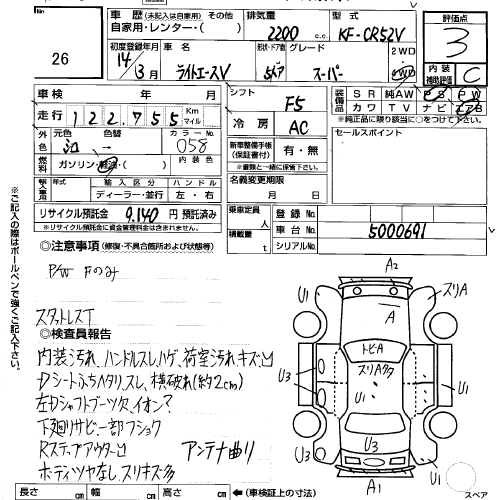 26
車歴(未記入は自家用) その他
自家用・レンタ・( )
排気量
2200 c.c.
型式
KF-CR52V
評価点
3
内装
補助評価
C
初度登録年月
14/3月
車名
ライトエースV
形状・ドア数
5ドア
グレード
スーパー
2WD
4WD
車検 年 月
走行 122,755 Km
マイル
シフト
F5
冷房
AC
装備品
SR 純AW PS PW
カワ TV ナビ エアB
※純正品に限り該当に○をつけて下さい。
セールスポイント
外色
元色 色替
カラーNo.
058
燃料
ガソリン・軽油・( )
内装色
新車整備手帳
(保証書付)
有・無
※書類と一緒に保管して下さい。
輸入車
年式
輸入区分
ディーラー・並行
ハンドル
左・右
名義変更期限
月 日
リサイクル預託金 9,140 円 預託済み
※リサイクル預託金に資金管理料金は含まれません。
乗車定員 人
積載量 t
登録No.
車台No. 5000691
シリアルNo.
◎注意事項(修復・不具合箇所および状態等)
P/W Fのみ
スタットレスT
◎検査員報告
内装汚れ、ハンドルスレ、ハゲ、荷室汚れ、キズ凹
Dシートふちヘタリ、スレ、横破れ(約2cm)
左Dシャフトブーツ欠、イオン?
下廻りサビ一部フショク
Rステップアウター凹 アンテナ曲り
ボディツヤなし、スリキズ多
長さ cm 幅 cm 高さ cm ◀(車検証上の寸法)
※ご記入の際はボールペンで強くご記入下さい。
A2
U1
スリA
A
トビA
スリAクタ
U3
U1
U1
U3
U1
A1
スペア